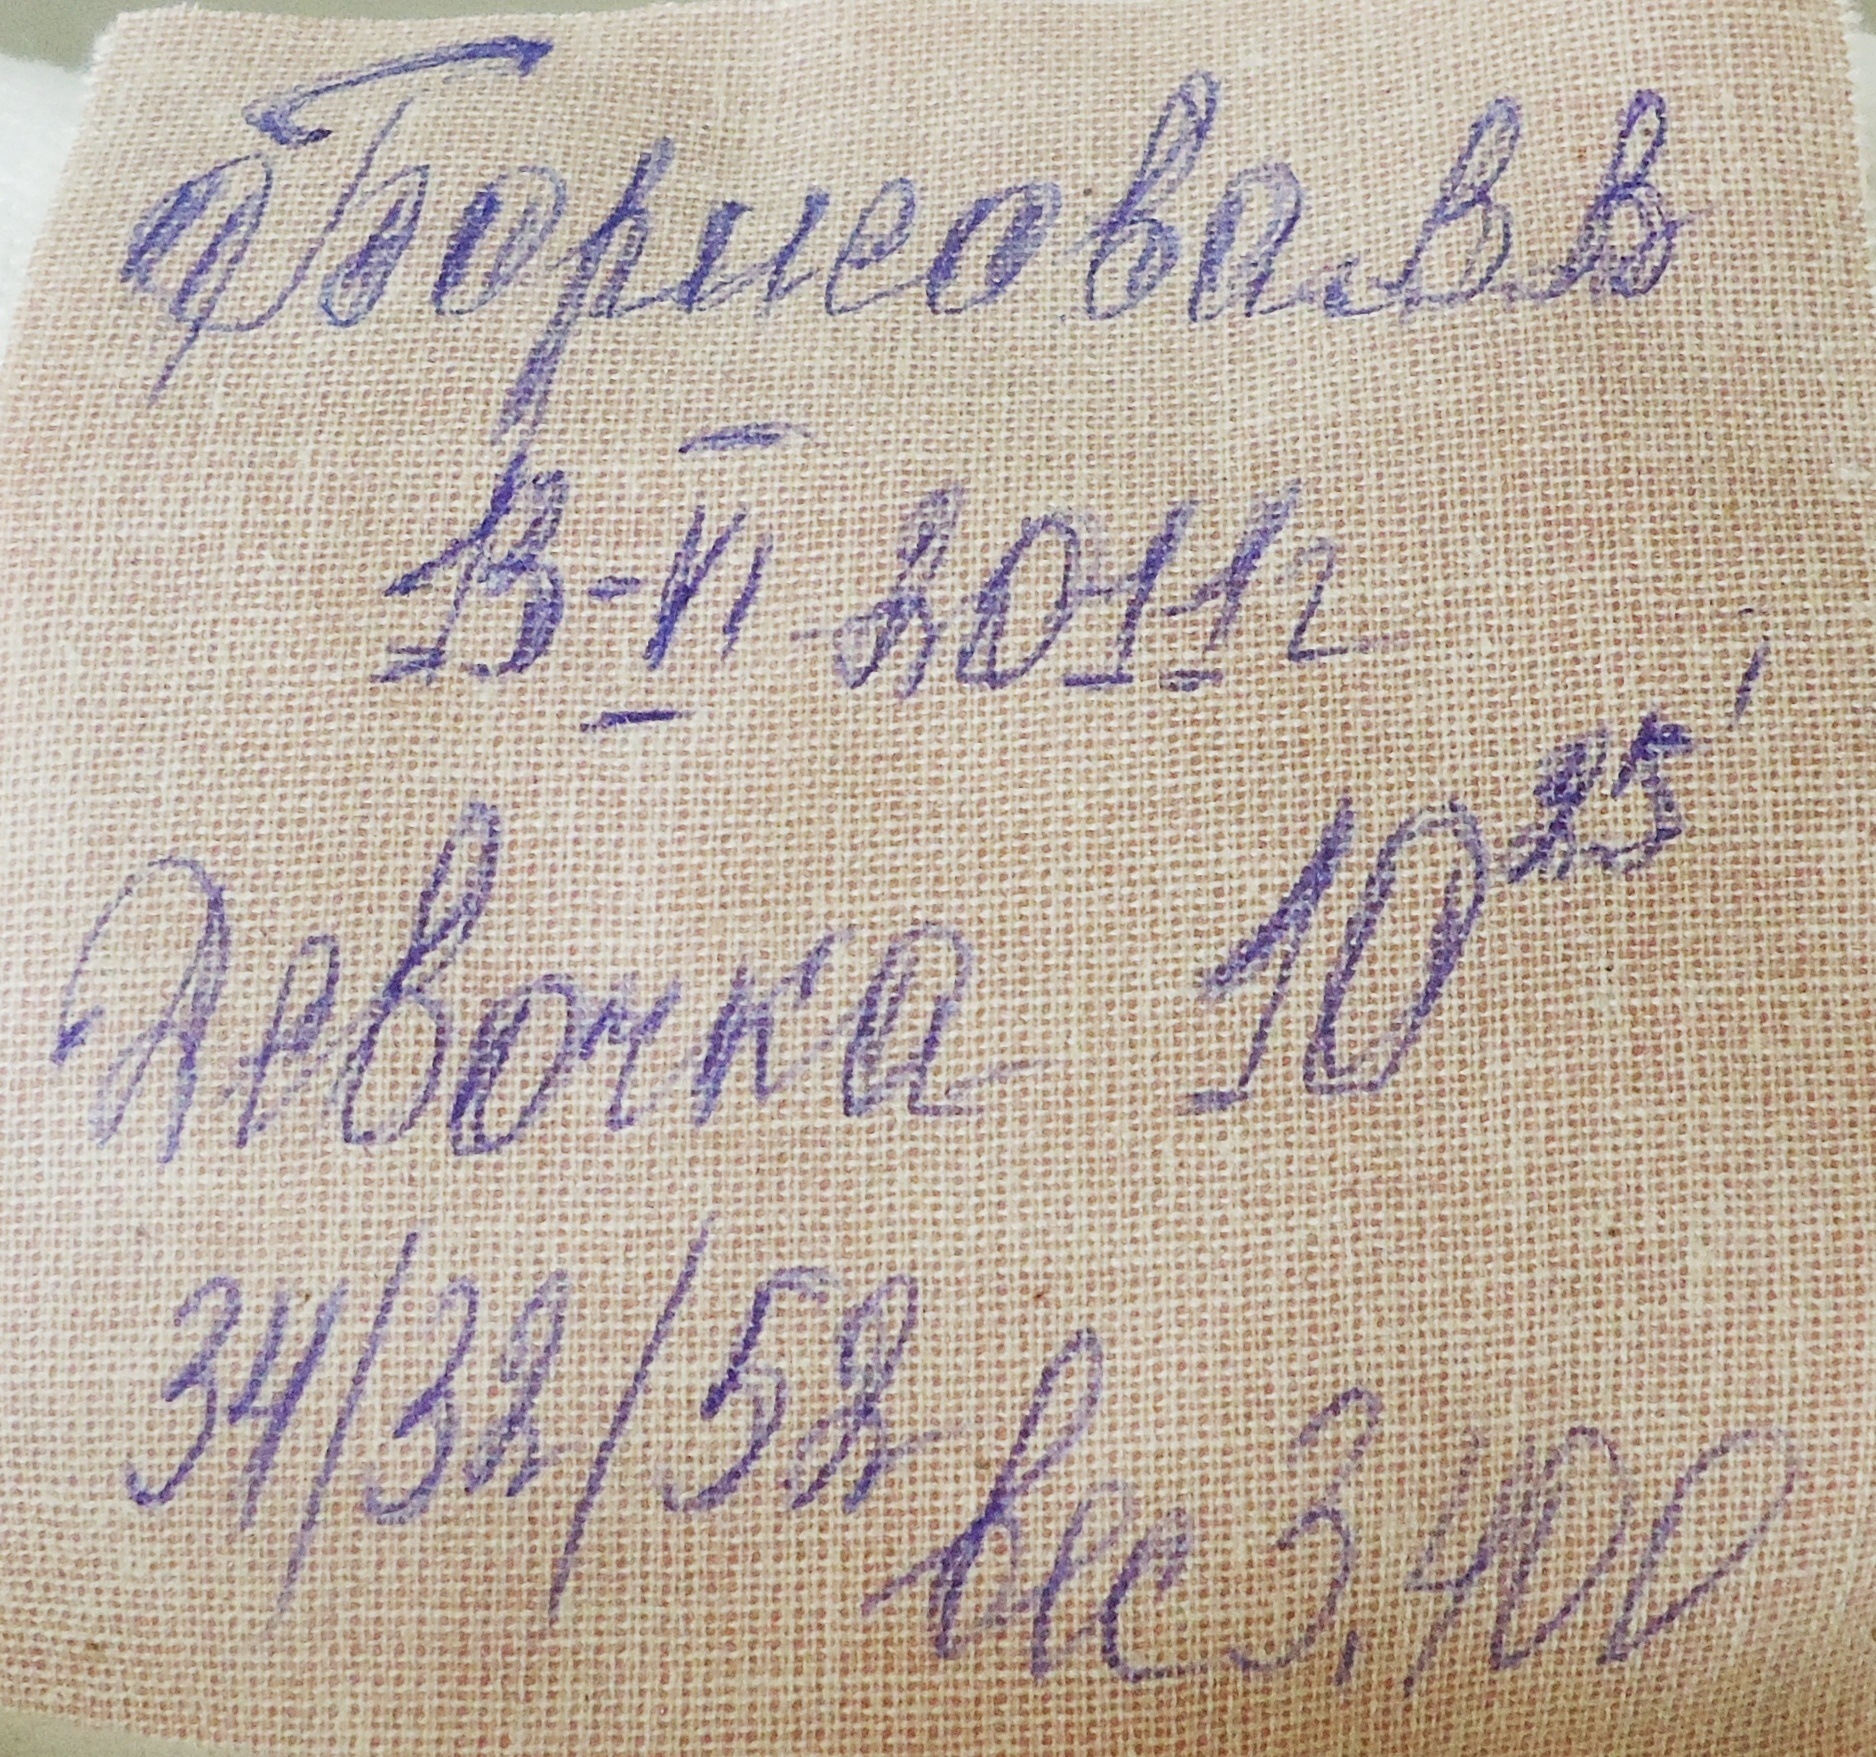 Борисова В В
13-VI 2011г
Девочка 10 25'
34/32/52 вес 3,400